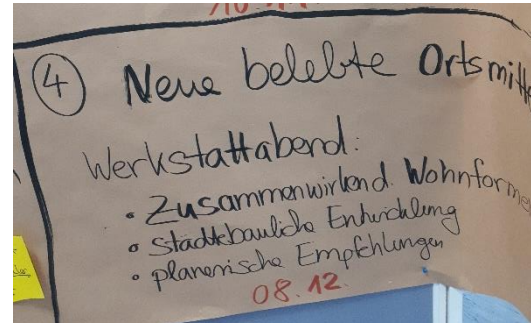 ④ Neue belebte Ortsmitte
Werkstattabend:
• Zusammenwirkend. Wohnformen
• Städtebauliche Entwicklung
• planerische Empfehlungen
08.12.